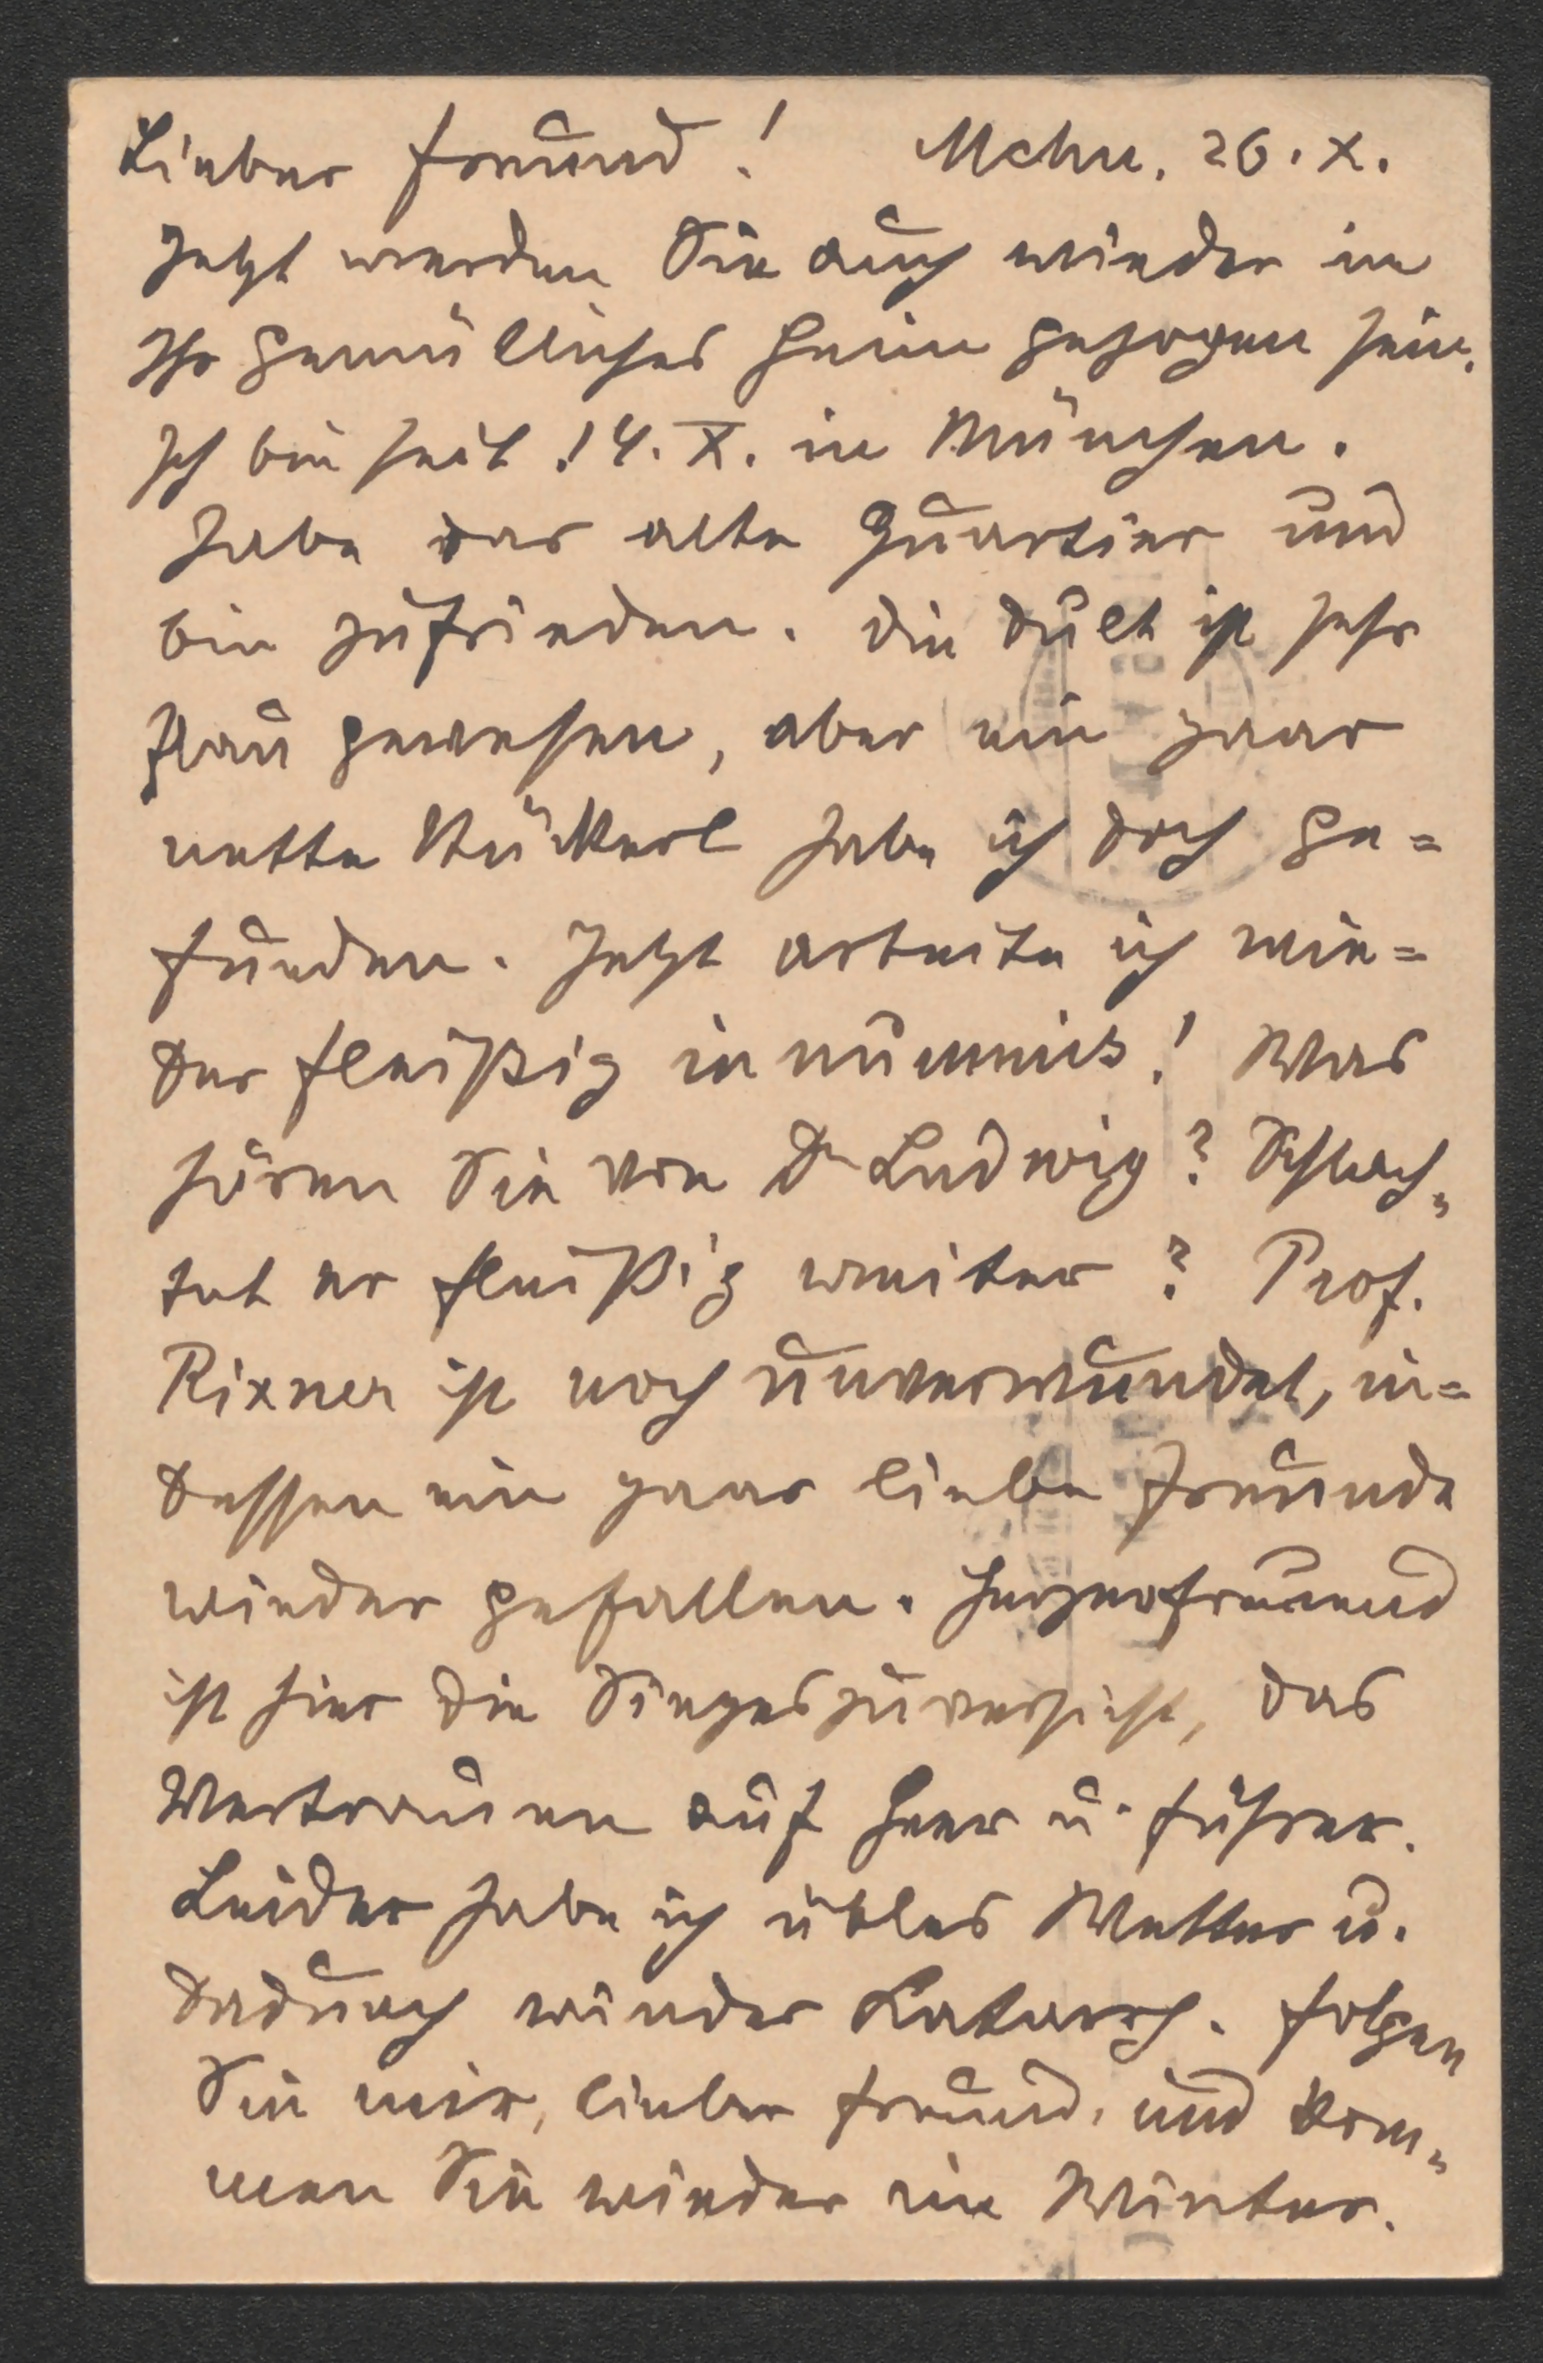 Lieber Freund! Mchn. 26. X.
Jetzt werden Sie auch wieder in
Ihr gemütliches Heim gezogen sein.
Ich bin seit 14. X. in München.
Habe das alte Quartier und
bin zufrieden. Die Dult ist sehr
flau gewesen, aber ein paar
nette Stückerl habe ich doch ge=
funden. Jetzt arbeite ich wie=
der fleißig in nummis! Was
hören Sie von Dr Ludwig? Schlach„
tet er fleißig weiter? Prof.
Rixner ist noch unverwundet, in=
dessen ein paar liebe Freunde
wieder gefallen. Herzerfreuend
ist hier die Siegeszuversicht, das
Vertrauen auf Heer u. Führer.
Leider habe ich übles Wetter u.
dadurch wieder Katarrh. Folgen
Sie mir, lieber Freund, und kom„
men Sie wieder im Winter.